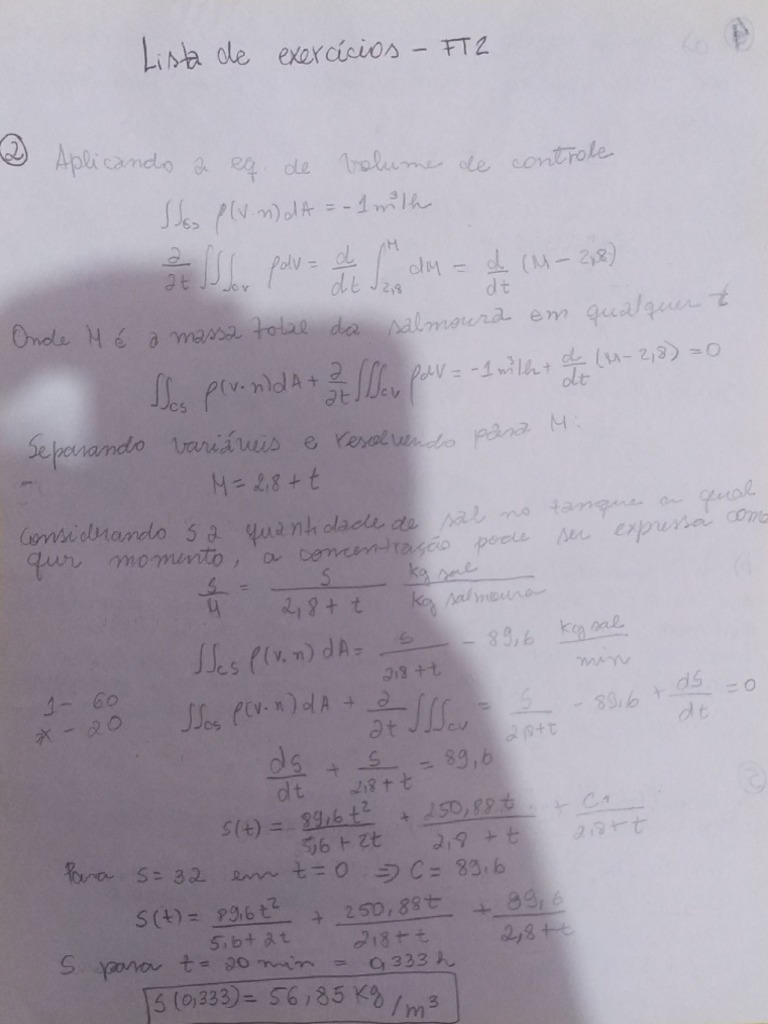 Lista de exercícios - FT2
② Aplicando a eq. de volume de controle
∬cs ρ(v·n)dA = -1m³/h
∂/∂t ∭cv ρdV = d/dt ∫_{2,8}^{M} dM = d/dt (M - 2,8)
Onde M é a massa total da salmoura em qualquer t
∬cs ρ(v·n)dA + ∂/∂t ∭cv ρdV = -1m³/h + d/dt (M - 2,8) = 0
Separando variáveis e resolvendo para M:
- M = 2,8 + t
Considerando S a quantidade de sal no tanque a qual
quer momento, a concentração pode ser expressa como
S/M = S/(2,8 + t) kg sal/kg salmoura
∬cs ρ(v·n) dA = S/(2,8+t) - 89,6 kg sal/min
1 - 60
x - 20
∬cs ρ(v·n)dA + ∂/∂t ∭cv = S/(2,8+t) - 89,6 + dS/dt = 0
dS/dt + S/(2,8+t) = 89,6
S(t) = 89,6t²/(5,6 + 2t) + 250,88t/(2,8 + t) + C1/(2,8+t)
Para S = 32 em t = 0 ⇒ C = 89,6
S(t) = 89,6t²/(5,6+2t) + 250,88t/(2,8+t) + 89,6/(2,8+t)
S para t = 20 min = 0,333 h
S(0,333) = 56,85 Kg/m³